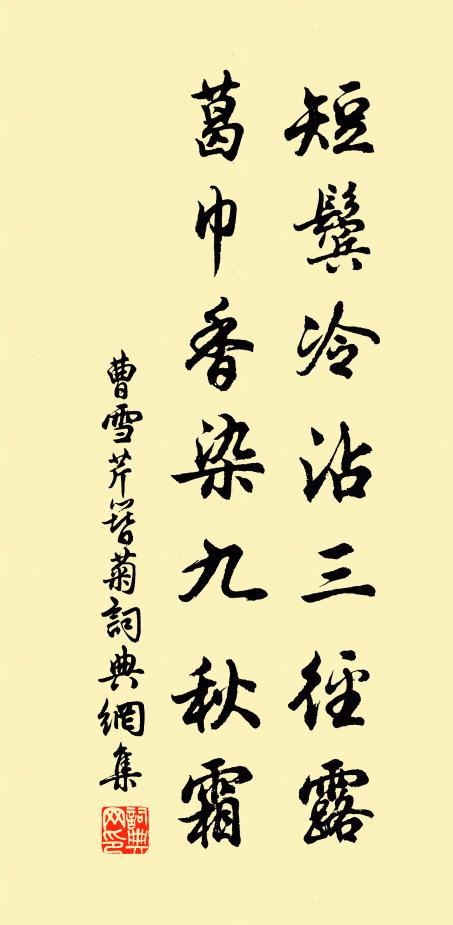 短鬢冷沾三徑露
葛巾香染九秋霜
曹雪芹簪菊詞典網集
詞典网印